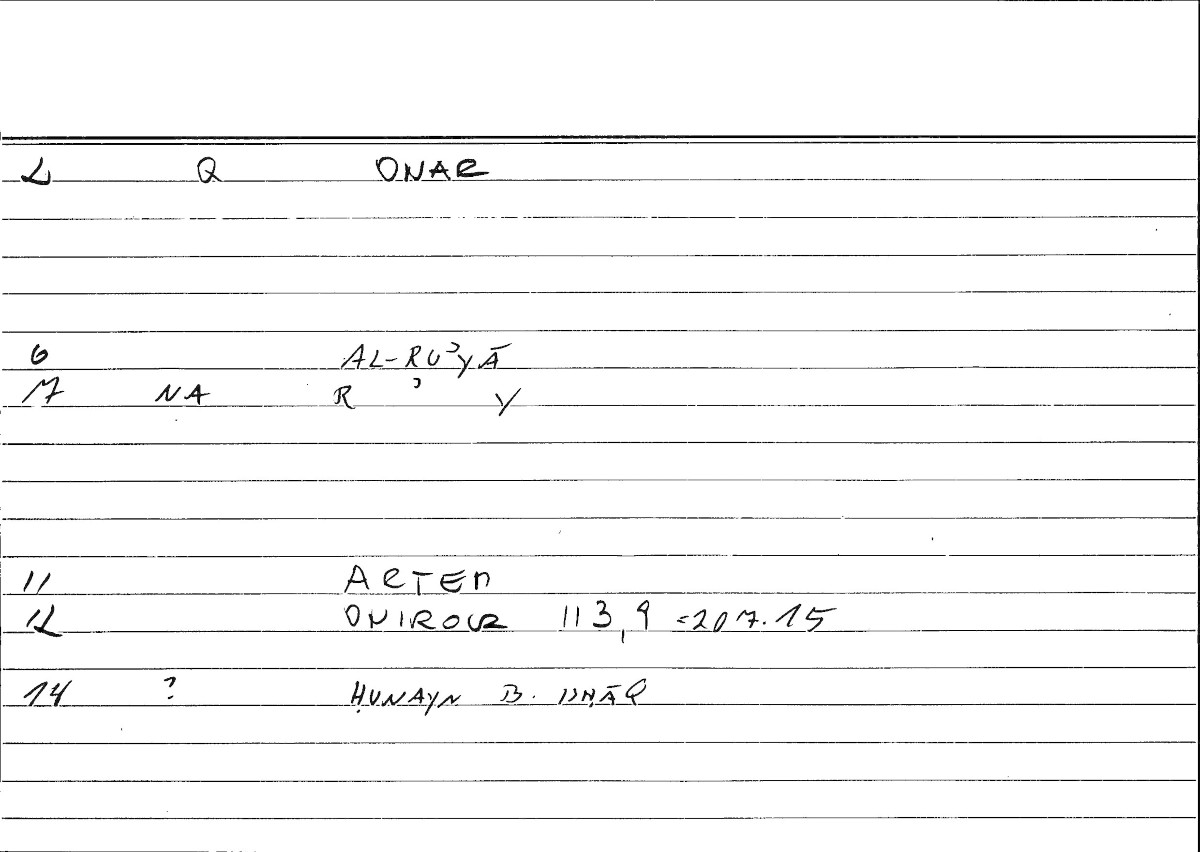 2 Q ONAR
6 AL-RUʾYĀ
7 NA R ʾ Y
11 ARTEM
12 ONIROCR 113,9 = 207.15
14 ? ḤUNAYN B. ISḤĀQ